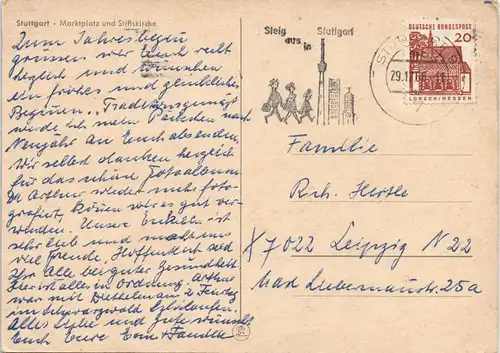 Stuttgart - Marktplatz und Stiftskirche
Zum Jahresbeginn
grüssen wir Euch recht
herzlich und wünschen
ein frohes und glückliches
Beginnen. Traditionsgemäss
werde ich mein Päckchen nach
Neujahr an Euch absenden.
Wir selbst danken herzlich
für das schöne Fotoalbum.
Da Arthur wieder mehr foto-
grafiert, können wir es gut ver-
wenden. Unsere Enkelin ist
sehr lieb und macht uns
viel Freude. Hoffentlich seid
Ihr Alle bei guter Gesundheit.
Hier ist alles in Ordnung. Arthur
war mit Diethelm an 2 Festtag
im Schwarzwald Schilaufen.
Alles Liebe und Gute wünscht
Euch Eure Erna + Familie
Steig aus in Stuttgart
STUTTGART
29.12.66
DEUTSCHE BUNDESPOST
20
LORSCH/HESSEN
Familie
Rch. Hertle
X 7022 Leipzig N 22
Max Liebermannstr. 25a